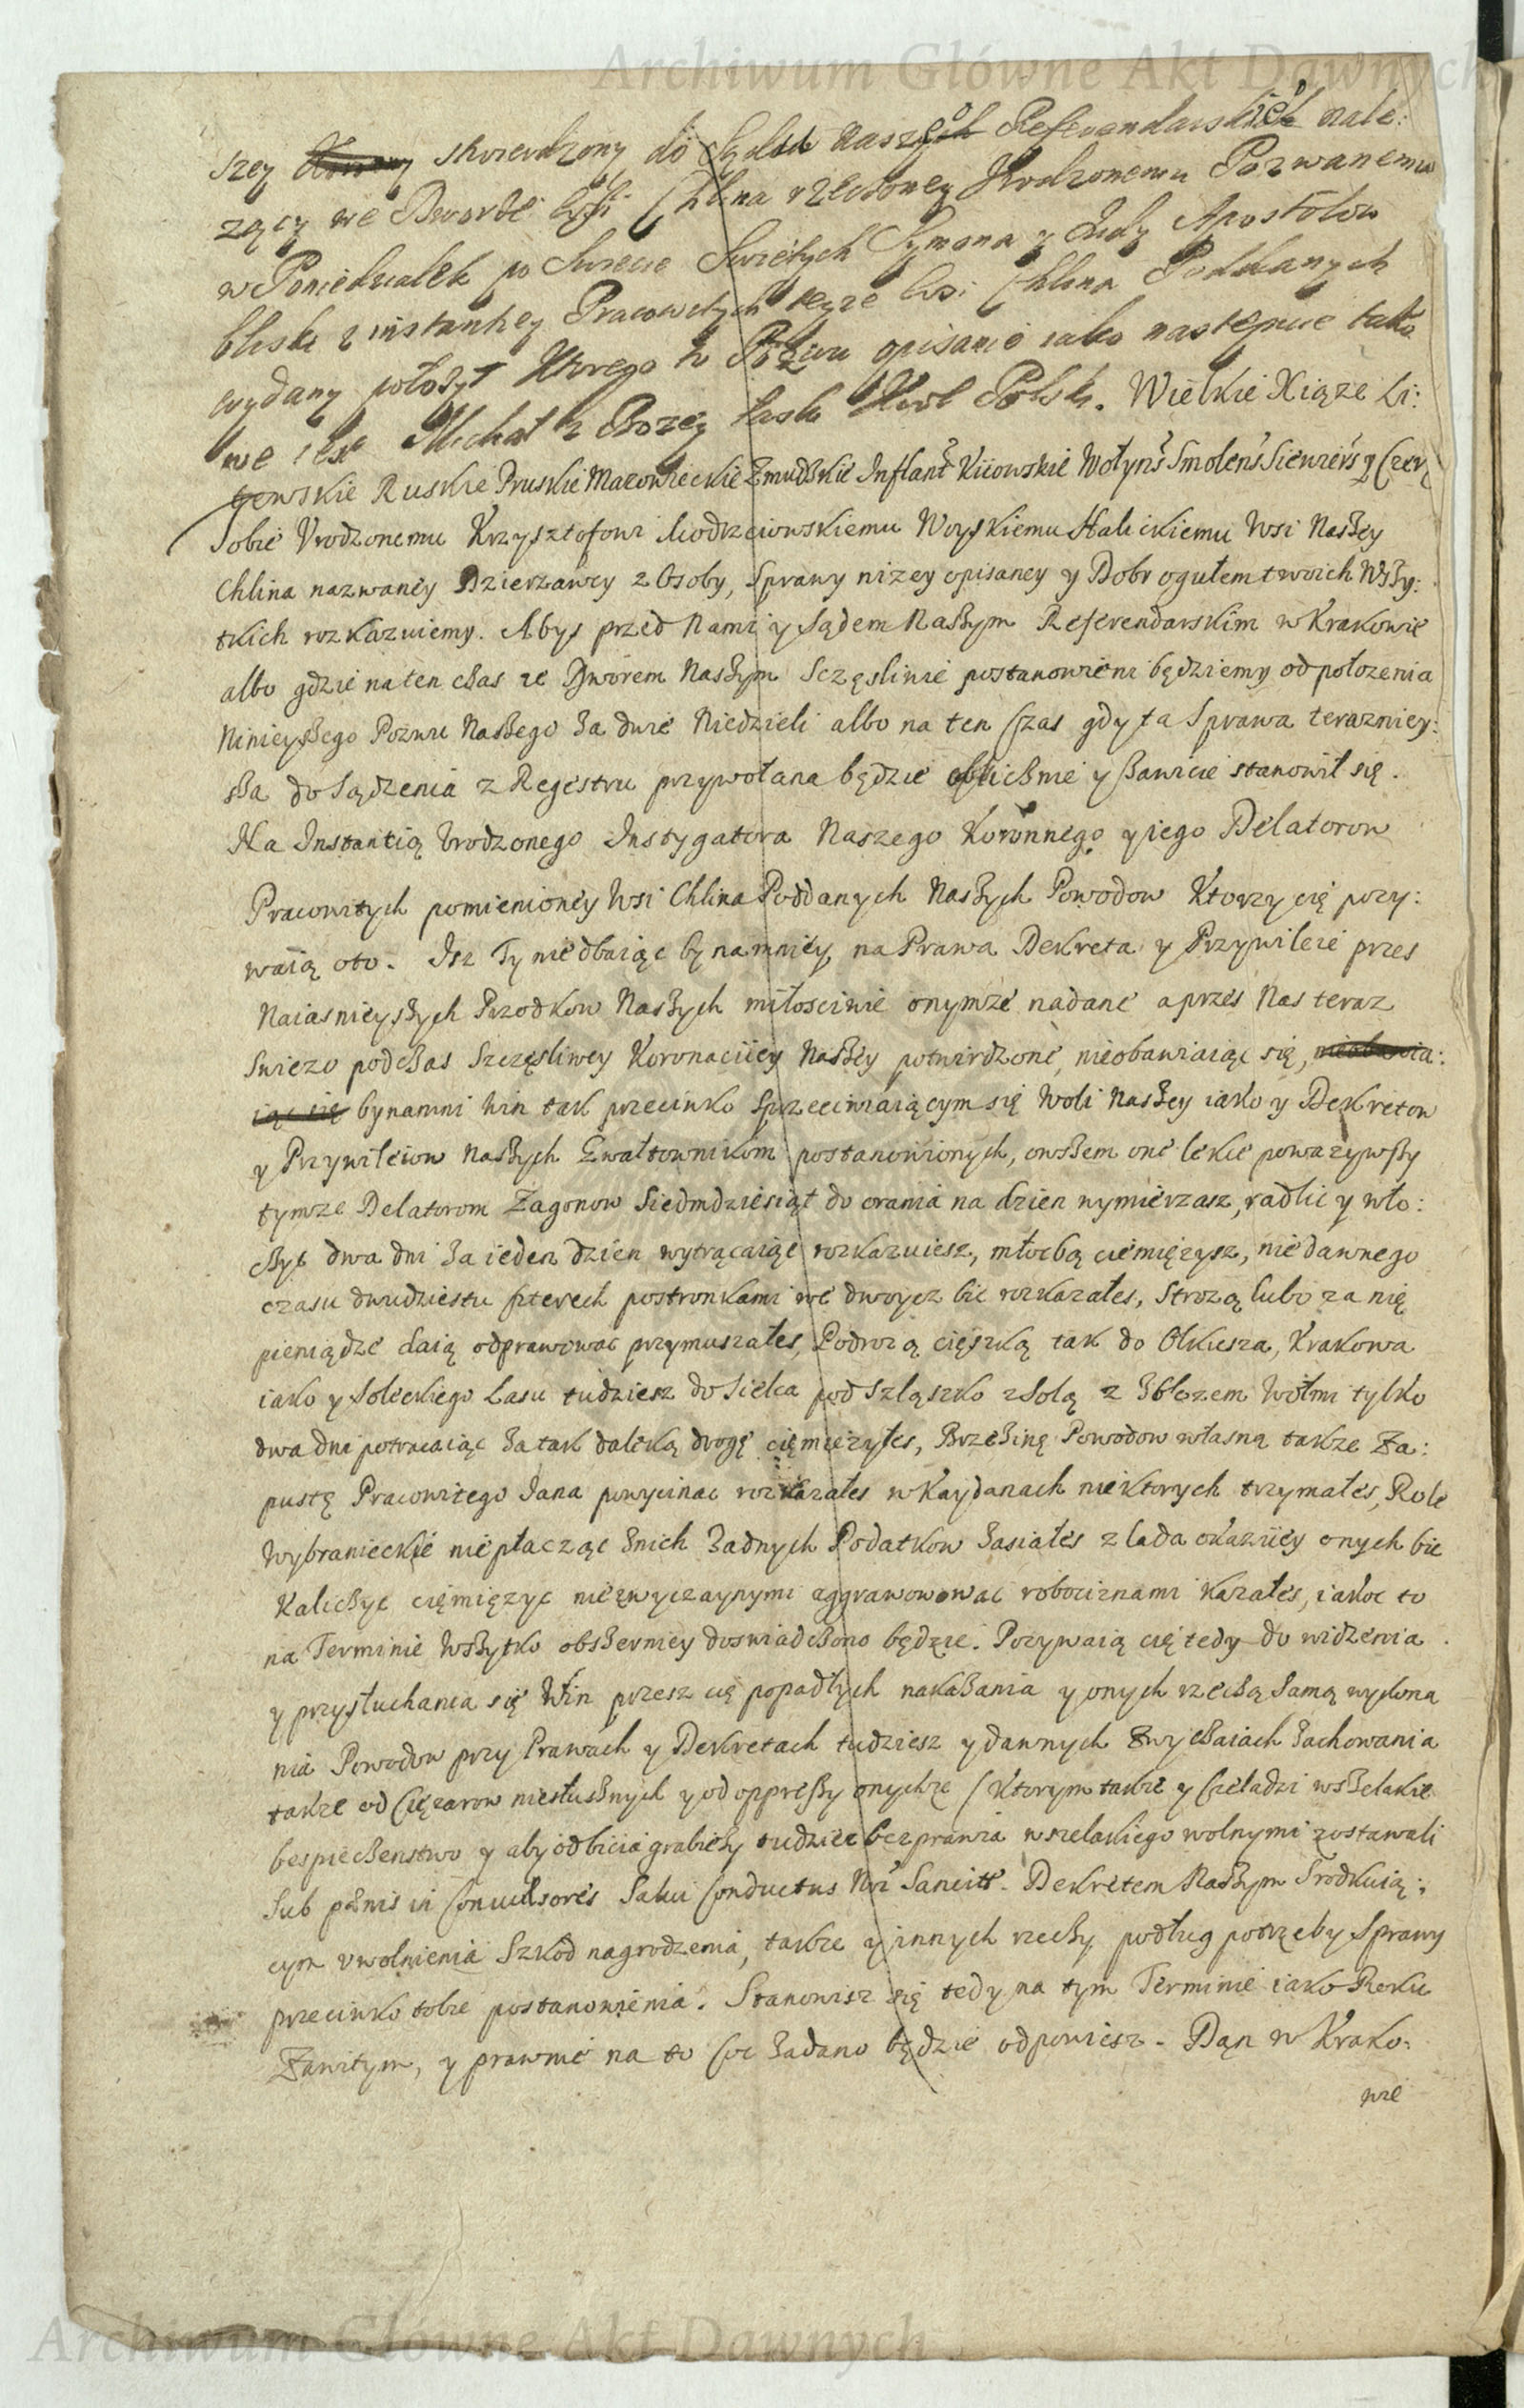 Archiwum Główne Akt Dawnych
szey stwierdzony do Sądu naszego Referendarskie nale:
zący we Dworze wsi Chlina rzeczoney Urodzonemu Pozwanemu
w Poniedziałek po Swięcie Swiętych Symona y Judy Apostołow
blisko z instantiey Pracowitych teyze wsi Chlina Poddanych
wydany położył Ktorego to Pozwu opisanie iako następuie tako
we iest Michał z Bozey łaski Krol Polski. Wielkie Xiąze Li:
Ruskie Pruskie Mazowieckie Zmudzkie Inflants Kiiowskie Wołyns Smolens Siewiers y Czer
gowskie
Tobie Vrodzonemu Krzysztofowi Modrzeiowskiemu Woyskiemu Halickiemu Wsi Naszey
Chlina nazwaney Dzierzawcy z Osoby, Sprawy nizey opisaney y Dobr ogułem twoich Wszy:
tkich rozkazuiemy. Abys przed Nami y Sądem Naszym Referendarskim w Krakowie
albo gdzie na ten czas ze Dworem Naszym Sczęsliwie postanowieni będziemy od położenia
Ninieyszego Pozwu Naszego za dwie Niedzieli albo na ten Czas gdy ta Sprawa terazniey:
sza do Sądzenia z Regestru przywołana będzie oblicznie y zawicie stanowił się.
Na Instantią Urodzonego Instygatora Naszego Koronnego y iego Delatorow
Pracowitych pomienioney Wsi Chlina Poddanych Naszych Powodow Ktorzy cię pozy:
waią oto. Isz Ty niedbaiąc bynamniey na Prawa Dekreta y Przywileie przes
Naiasnieyszych Przodkow Naszych miłosciwie onymze nadane a przes Nas teraz
Swiezo podczas Szczęsliwey Koronaciiey Naszey potwirdzone, nieobawiaiąc się, nieobawia:
iąc się bynamni win tak przeciwko Sprzeciwiaiącym się Woli Naszey iako y Dekretow
y Przywileiow Naszych Gwałtownikom postanowionych, owszem one lekce powazywszy
tymze Delatorom Zagonow Siedmdziesiąt do orania na dzien wymierzasz, radlic y wło:
czyć dwa dni za ieden dzien wytrącaiąc rozkazuiesz, młocbą ciemięzysz, niedawnego
czasu dwudziestu czterech postronkami we dwoycz bic rozkazałes, Strozą lubo za nię
pieniądze daią odprawować przymuszałes, Podrozą cięszką tak do Olkusza, Krakowa
iako y Soleckiego Lasu tudziesz do Sielca pod Szląszko z Solą z Zbozem Wołmi tylko
dwa dni potracaiąc za tak daleką drogę ciemiężyłes, Brzezinę Powodow własną takze Za:
pustę Pracowitego Jana powycinac rozkazałes w Kaydanach niektorych trzymałes, Role
Wybranieckie niepłacząc znich zadnych Podatkow zasiałes z lada okaziiey onych bic
Kaliczyc ciemięzyc niezwyczaynymi aggrawowowac robociznami kazałes, iakoc to
na Terminie Wszytko obszerniey doswiadczono będzie. Pozywaią cię tedy do widzenia
y przysłuchania się Win przesz cię popadłych nakazania y onych rzeczą Samą wykona
nia Powodow przy Prawach y Dekretach tudziesz y dawnych Zwyczaiach zachowania
takze od Cięzarow niesłusznych y od oppressy onychze (ktorym takze y Czeladzi wszelakie
bespieczenstwo y aby od bicia grabiezy tudziez bezprawia wszelakiego wolnymi zostawali
Sub pœnis in Convulsores Salvi Conductus Nri Sancitt. Dekretem Naszym Srodkuią:
cym vwolnienia Szkod nagrodzenia, takze y innych rzeczy podług potrzeby Sprawy
przeciwko tobie postanowienia. Stanowisz się tedy na tym Terminie iako Roku
Zawitym, y prawnie na to coc zadano będzie odpowiesz. Dan w Krako:
wie
Archiwum Główne Akt Dawnych